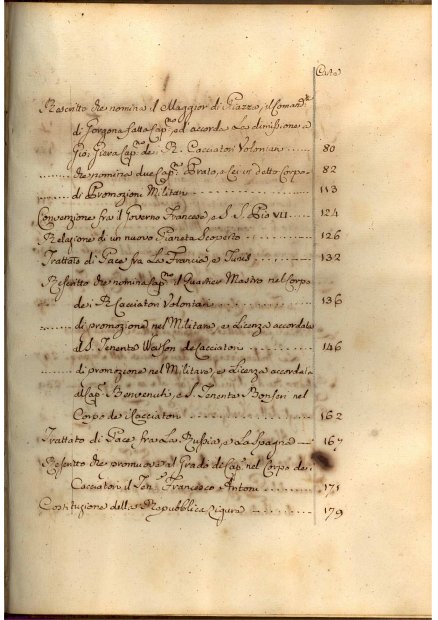 Carta
Rescritto che nomina il Maggior di Piazza, il Comand.te
di Gorgona fatta Cap.no, ed accorda la dimissione a
Gio: Cap.no dei R. Cacciatori Volontari .......... 80
....... che nomina due Cap.ni Prato, e Lei in detto Corpo .. 82
....... di Promozioni Militari .......... 113
Convenzione fra il Governo Francese, e S. S. Pio VII ...... 124
Relazione di un nuovo Pianeta Scoperto .......... 126
Trattato di Pace fra la Francia, e Tunis .......... 132
Rescritto che nomina Cap.no il Quartier Mastro nel Corpo
dei R. Cacciatori Volontari .......... 136
....... di promozione nel Militare, e Licenza accordata
al S. Tenente de Cacciatori .......... 146
....... di promozione nel Militare, e Licenza accordata
al Cap. Benvenuti, e S. Tenente Bonseri nel
Corpo dei Cacciatori .......... 162
Trattato di Pace fra la Russia, e la Spagna — 167
Rescritto che promuove al Grado di Cap. nel Corpo dei
Cacciatori il Ten. Francesco Antoni .......... 171
Costituzione della Repubblica Ligure .......... 179